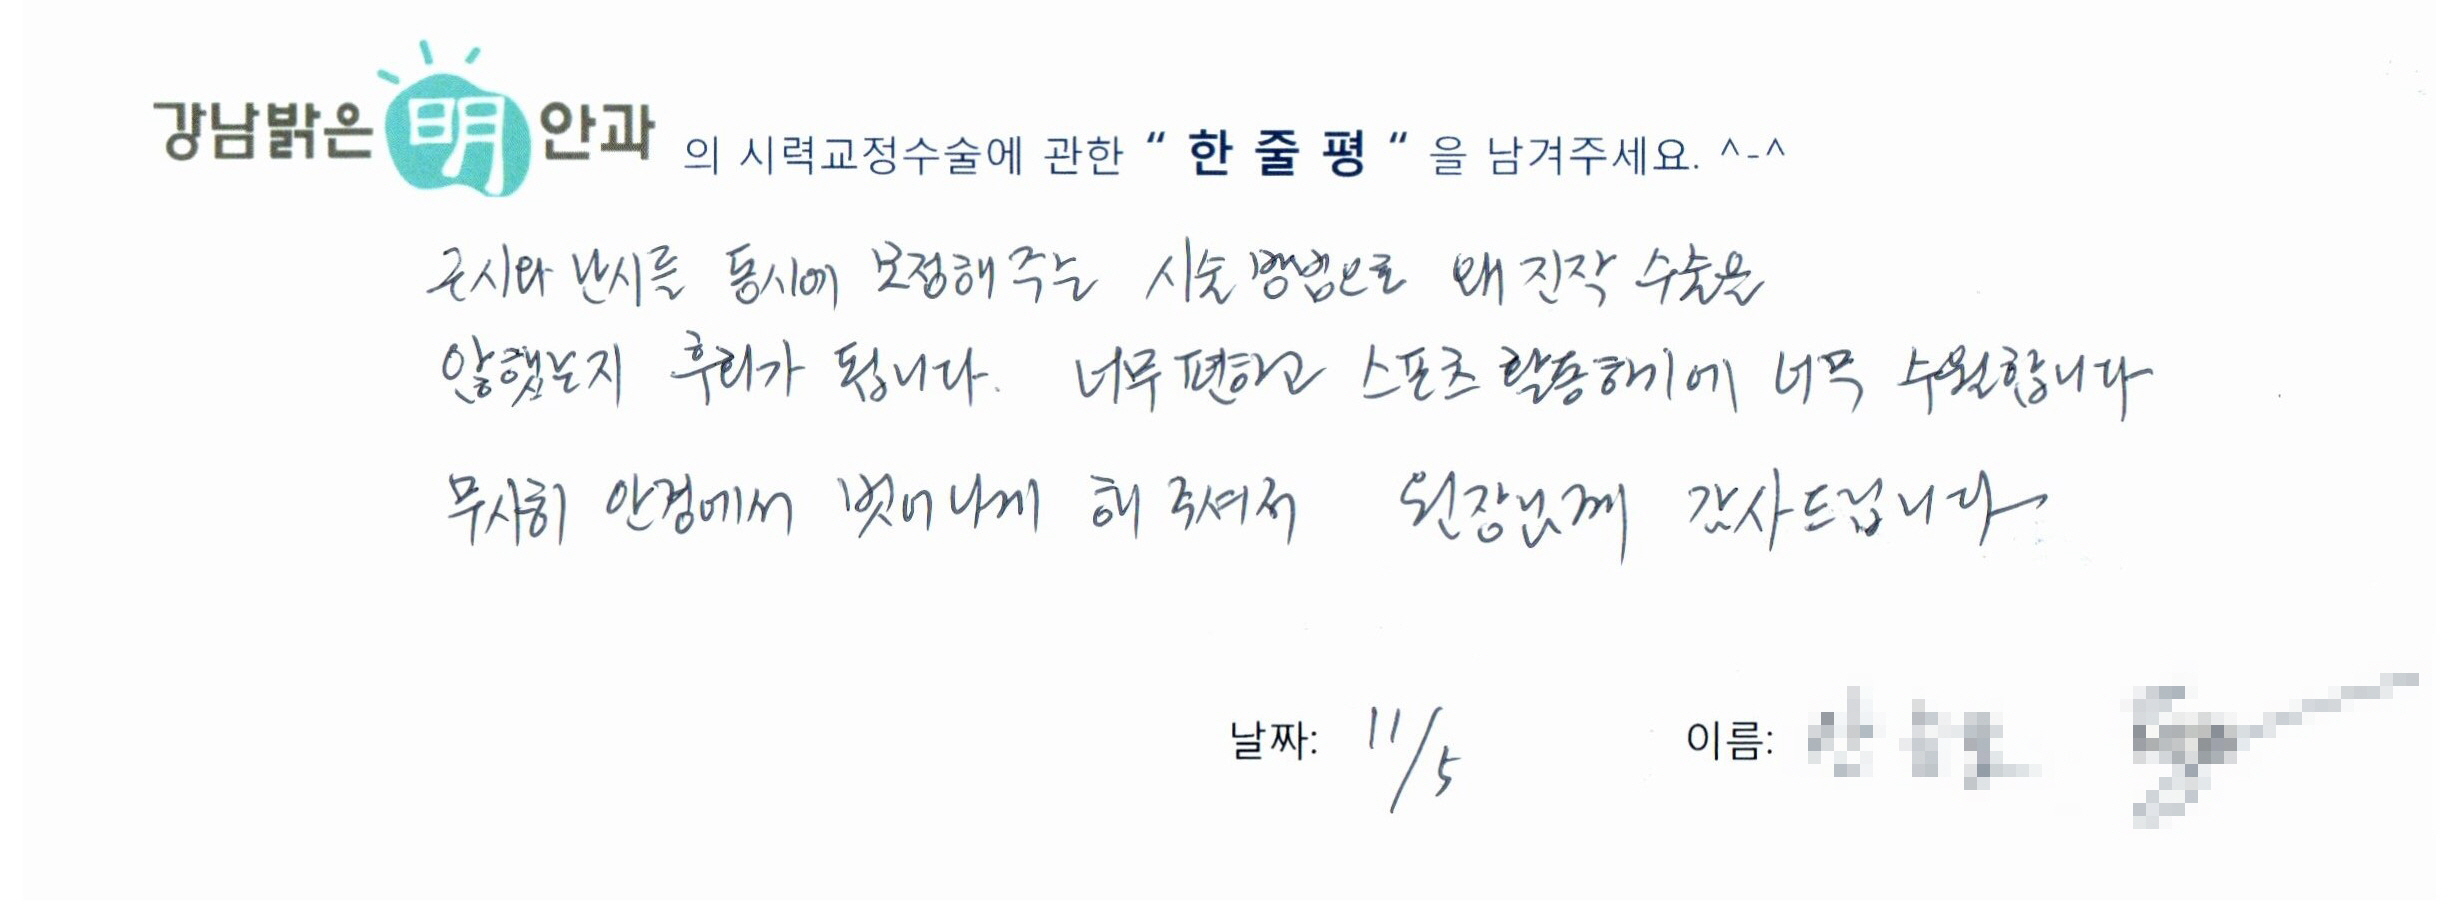 강남밝은明안과 의 시력교정수술에 관한 “ 한 줄 평 “ 을 남겨주세요. ^-^
근시와 난시를 동시에 보정해 주는 시술 방법으로 왜 진작 수술을
않했는지 후회가 됩니다. 너무 편하고 스포츠 활동하기에 너무 수월합니다
무사히 안경에서 벗어나게 해 주셔서 원장님께 감사드립니다
날짜: 11/5 이름: